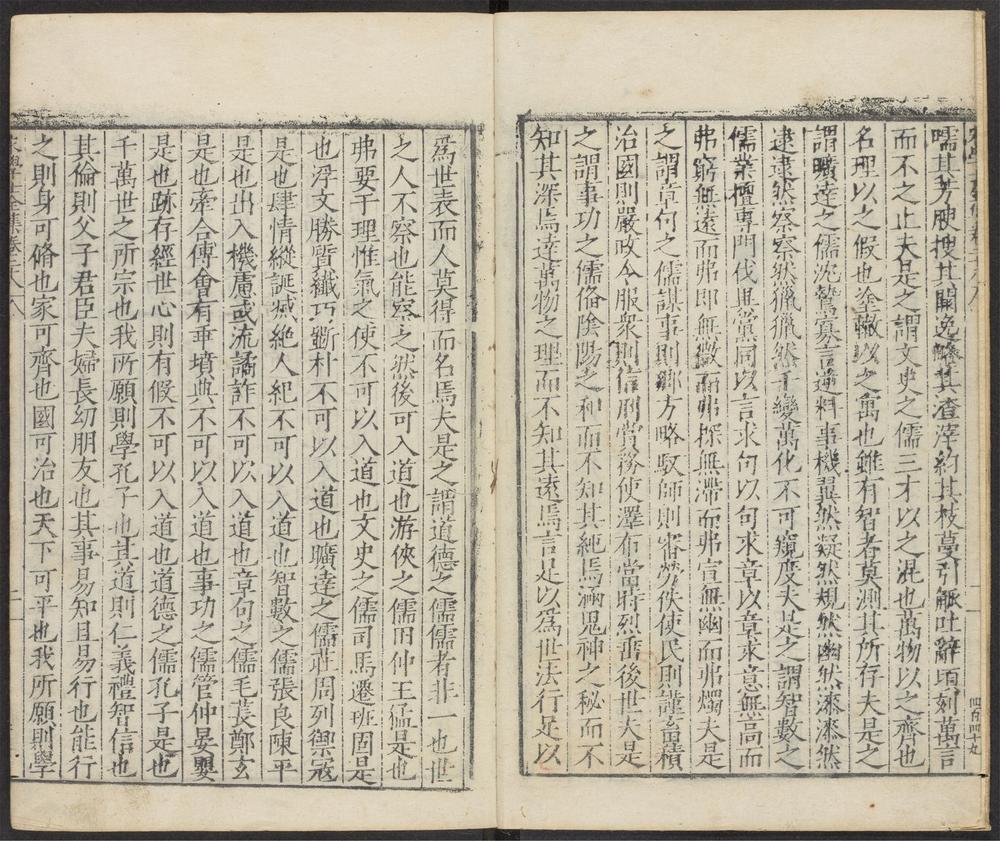 嚅其芳腴搜其闕逸略其渣滓約其枝蔓引觚吐辭頃刻萬言
而不之止夫是之謂文史之儒三才以之混也萬物以之齊也
名理以之假也塗轍以之寓也雖有智者莫測其所存夫是之
謂曠達之儒沈鷙寡言逆料事機翼然凝然規然幽然漆漆然
逮逮然察察然獵獵然千變萬化不可窺度夫是之謂智數之
儒業擅專門伐異黨同以言求句以句求章以章求意無高而
弗窮無遠而弗即無微而弗探無滯而弗宣無幽而弗燭夫是
之謂章句之儒謀事則鄉方略馭師則審勞佚使民則謹畜積
治國則嚴政令服衆則信刑賞務使澤布當時烈垂後世夫是
之謂事功之儒備陰陽之和而不知其純焉涵鬼神之秘而不
知其深焉達萬物之理而不知其遠焉言足以爲世法行足以
四百四十九
爲世表而人莫得而名焉夫是之謂道德之儒儒者非一也世
之人不察也能察之然後可入道也游俠之儒田仲王猛是也
弗要于理惟氣之使不可以入道也文史之儒司馬遷班固是
也浮文勝質纖巧斲朴不可以入道也曠達之儒莊周列禦寇
是也肆情縱誕滅絶人紀不可以入道也智數之儒張良陳平
是也出入機慮或流譎詐不可以入道也章句之儒毛萇鄭玄
是也牽合傅會有乖墳典不可以入道也事功之儒管仲晏嬰
是也跡存經世心則有假不可以入道也道德之儒孔子是也
千萬世之所宗也我所願則學孔子也其道則仁義禮智信也
其倫則父子君臣夫婦長幼朋友也其事易知且易行也能行
之則身可脩也家可齊也國可治也天下可平也我所願則學